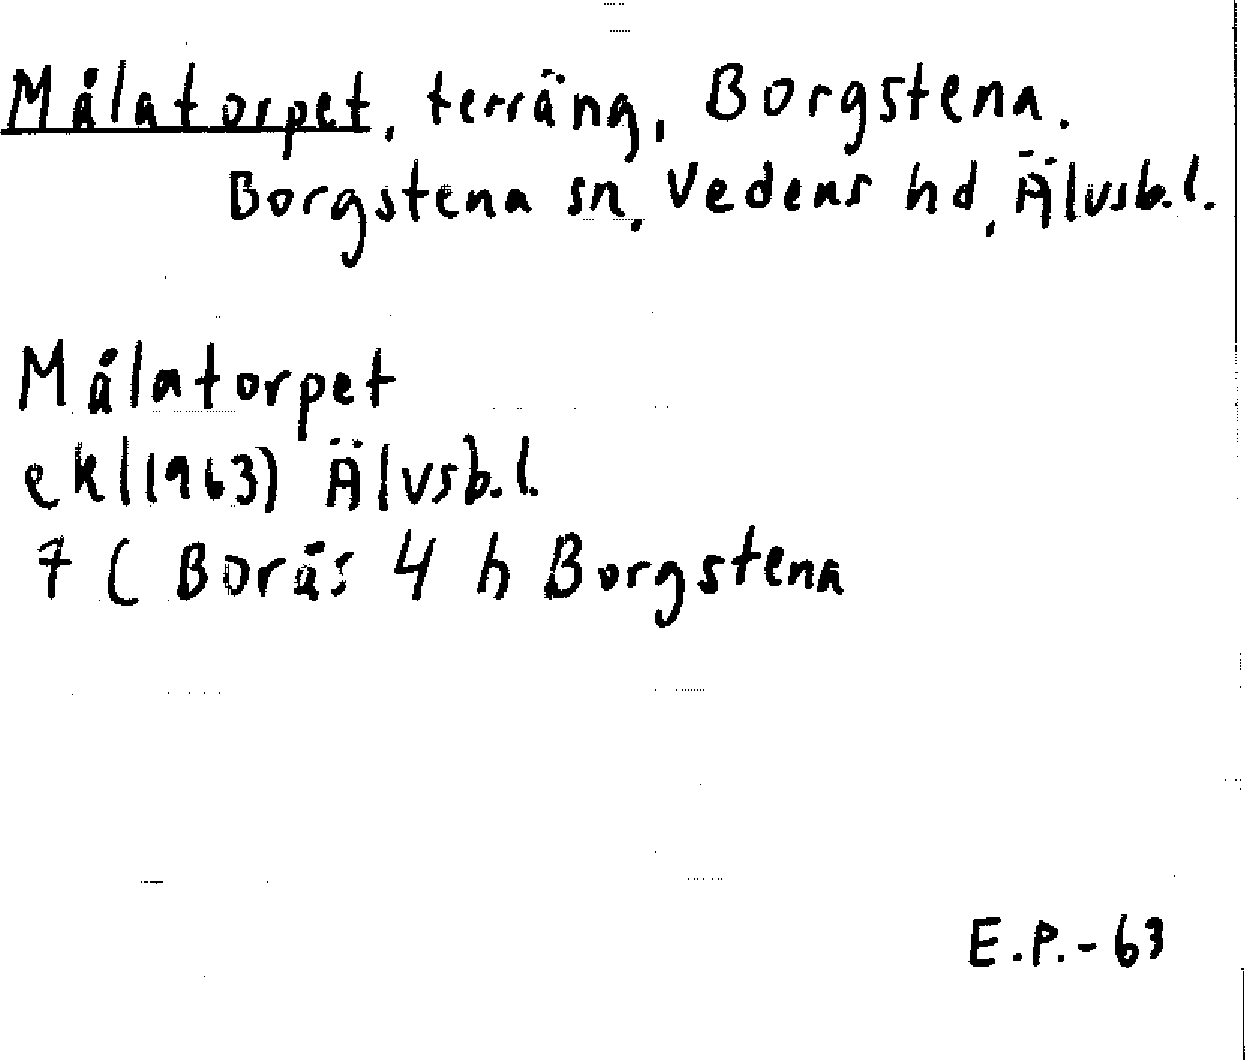 Målatorpet, terräng, Borgstena.
Borgstena sn, Vedens hd, Älvsb.l.
Målatorpet
ekl(1963) Älvsb.l.
7 C Borås 4 h Borgstena
E.P.-63